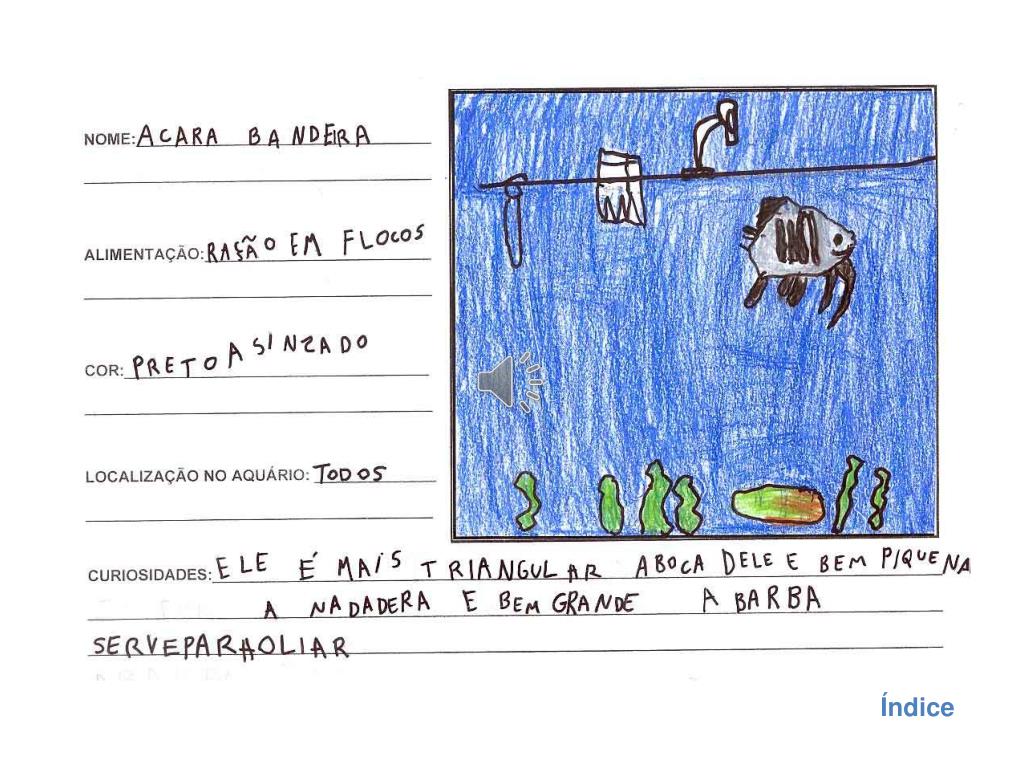 NOME: ACARA BANDEIRA
ALIMENTAÇÃO: RAŞÃO EM FLOCOS
COR: PRETO A SINZADO
LOCALIZAÇÃO NO AQUÁRIO: TODOS
CURIOSIDADES: ELE É MAIS TRIANGULAR A BOCA DELE E BEM PIQUENA
A NADADERA E BEM GRANDE A BARBA
SERVEPARAOLIAR
Índice